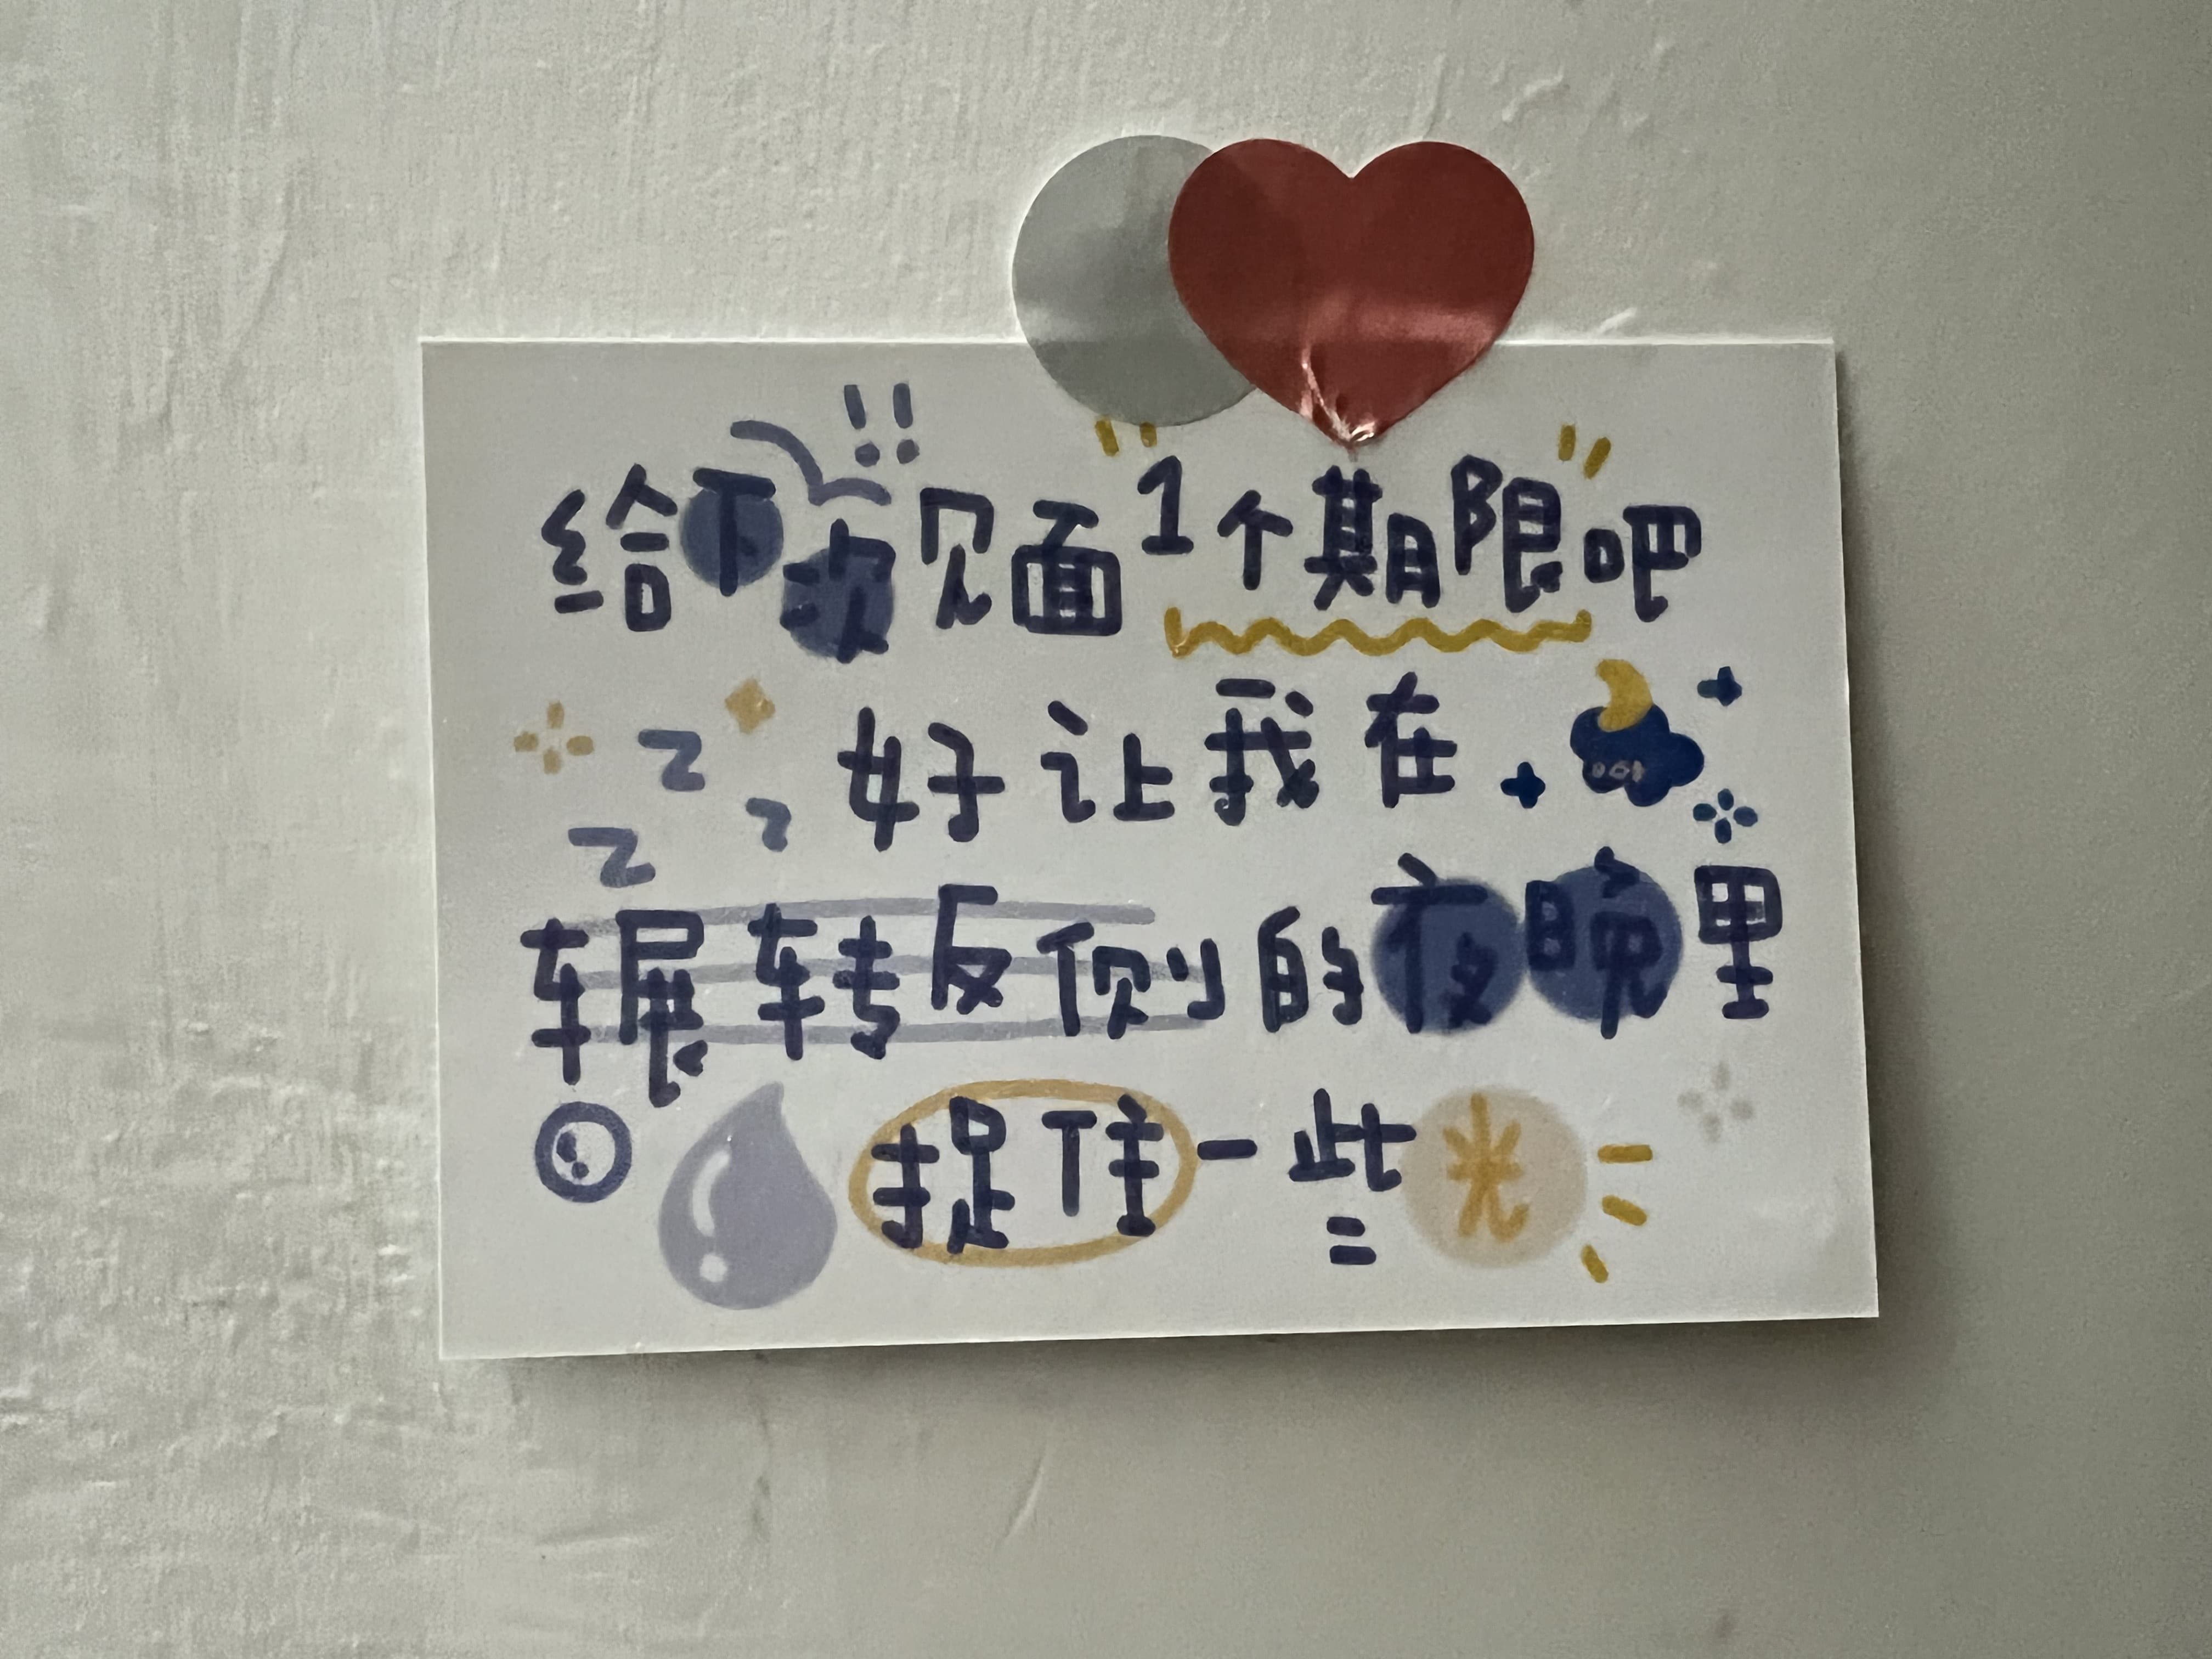 给下次见面1个期限吧
z z 好让我在
z
辗转反侧的夜晚里
捉住一些光